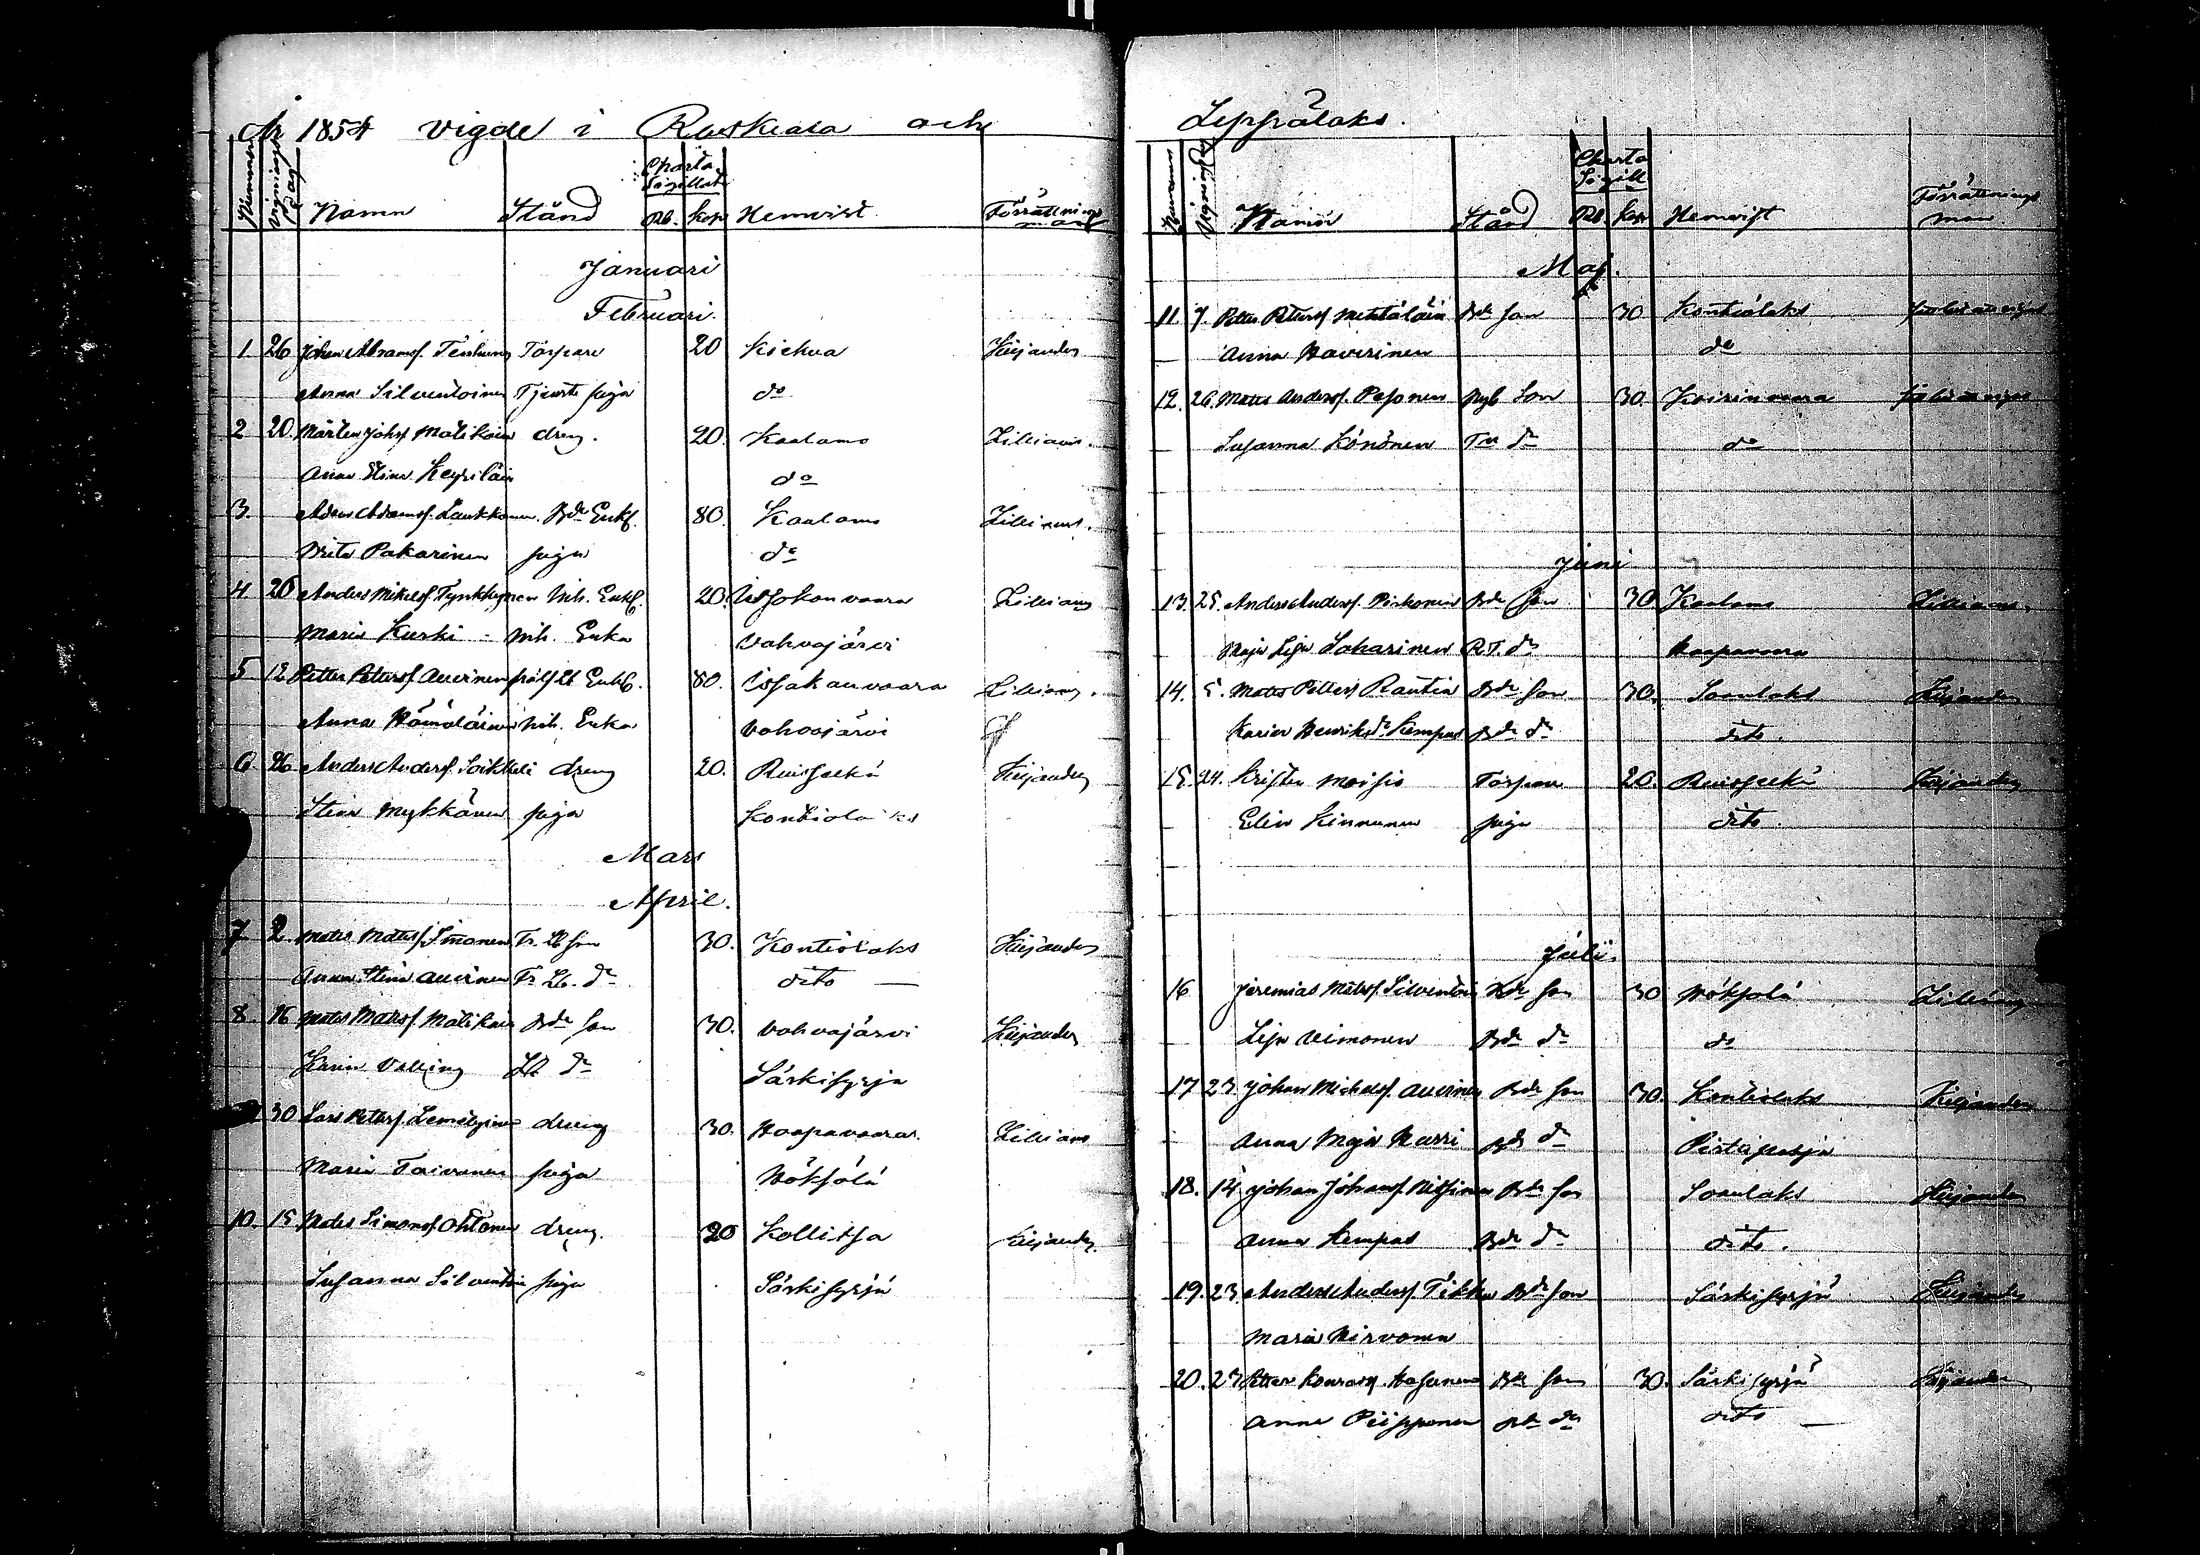 År 1854 vigde i Ruskeala och
Nummer Vigningsdag Namn Stånd Charta Sigillat Rb. Kop Hemvist Förrättningsman
Januari
Februari.
1 26 Johan Abramsf. Tenhunen Torpare 20 Kichua Kiljander
Anna Silventoinen Tjenste piga do
2 20. Mårten Johsf Matikain dreng. 20. Kaalamo Lilliaus.
Anna Stina Keysiläin do
3. Adam Adamsf. Laukkanen Bde Enkl. 80. Kaalamo Lilliaus.
Brita Pakarinen piga do
4. 26 Anders Mikelsf. Tynkkynen Inh. Enkl. 20. Uusjokonvaara Lilliaus
Maria Kurki - Inh. Enka Vahvajärvi
5 12 Petter Petersf Auvinen Enkl. 80. Lilliaus.
Anna Hämäläinen Inh. Enka Vahvajärvi
6 26 Anders Andersf. Soikkeli dreng 20. Ruisselkä Kiljander
Stina Mykkänen piga Kontiolaks
Mars
April.
7 2. Mats Matsf. Simonen Fr. Lb son 30. Kontiolaks Kiljander
Anna Stina Auvinen Fr. Lb. dr dito
8. 16 Mats Matsf. Matikain Bde son 30. Vahvajärvi Kiljander
Karin Valling Lb dr Särkisyrja
30 Lars Petersf. dreng 30. Haapavaara. Lilliaus
Maria Taivanen piga Wöksölä
10. 15. Mats Simonsf. Ohtonen dreng. 20 Kollitsa Kiljander
Susanna Silventoin piga Särkisyrjä
Leppälaks.
Nummer Vigningsdag Namn Stånd Charta Sigill Rb. Kop Hemvist Förrättningsman
Maj.
11. 7. Petter Petersf Bde son 30 Kontiolaks
Anna Haverinen do
12. 26. Mats Andersf. Pesonen Nyb Son 30. Koirinvaara
Susanna Könönen dr do
Juni
13. 25. Anders Andersf. Pirhonen Bde son 30. Kaalamo Lilliaus.
Maja Lisa Saharinen dr Haapavaara
14. 5. Mats Petters Rautia Bde son 30. Soanlaks Kiljander
Karin Henriksdr Kempas Bde dr dito.
15. 24. Krister Moisio Torpare 20. Ruisselkä Kiljander
Elin Kinnunen piga dito.
Juli.
16 Jeremias Matsf. Silventoin Bde son 30 Wöksölä Lilliaus
Lisa Reimonen Bde dr do
17 23. Johan Michelsf. Auvinen Bde son 30. Kontiolaks Kiljander
Anna Maja Harri Bde dr
18. 14 Johan Johansf Bde son Soanlaks Kiljander
Anna Kempas Bde dr dito.
19. 23. Anders Andersf. Tikka Bde son Särkisyrjä Kiljander
Maria Hirvonen
20. 23. Petter Konradsf. Bde son 30. Särkisyrjä Kiljander
Anna Piipponen Bde dr dito